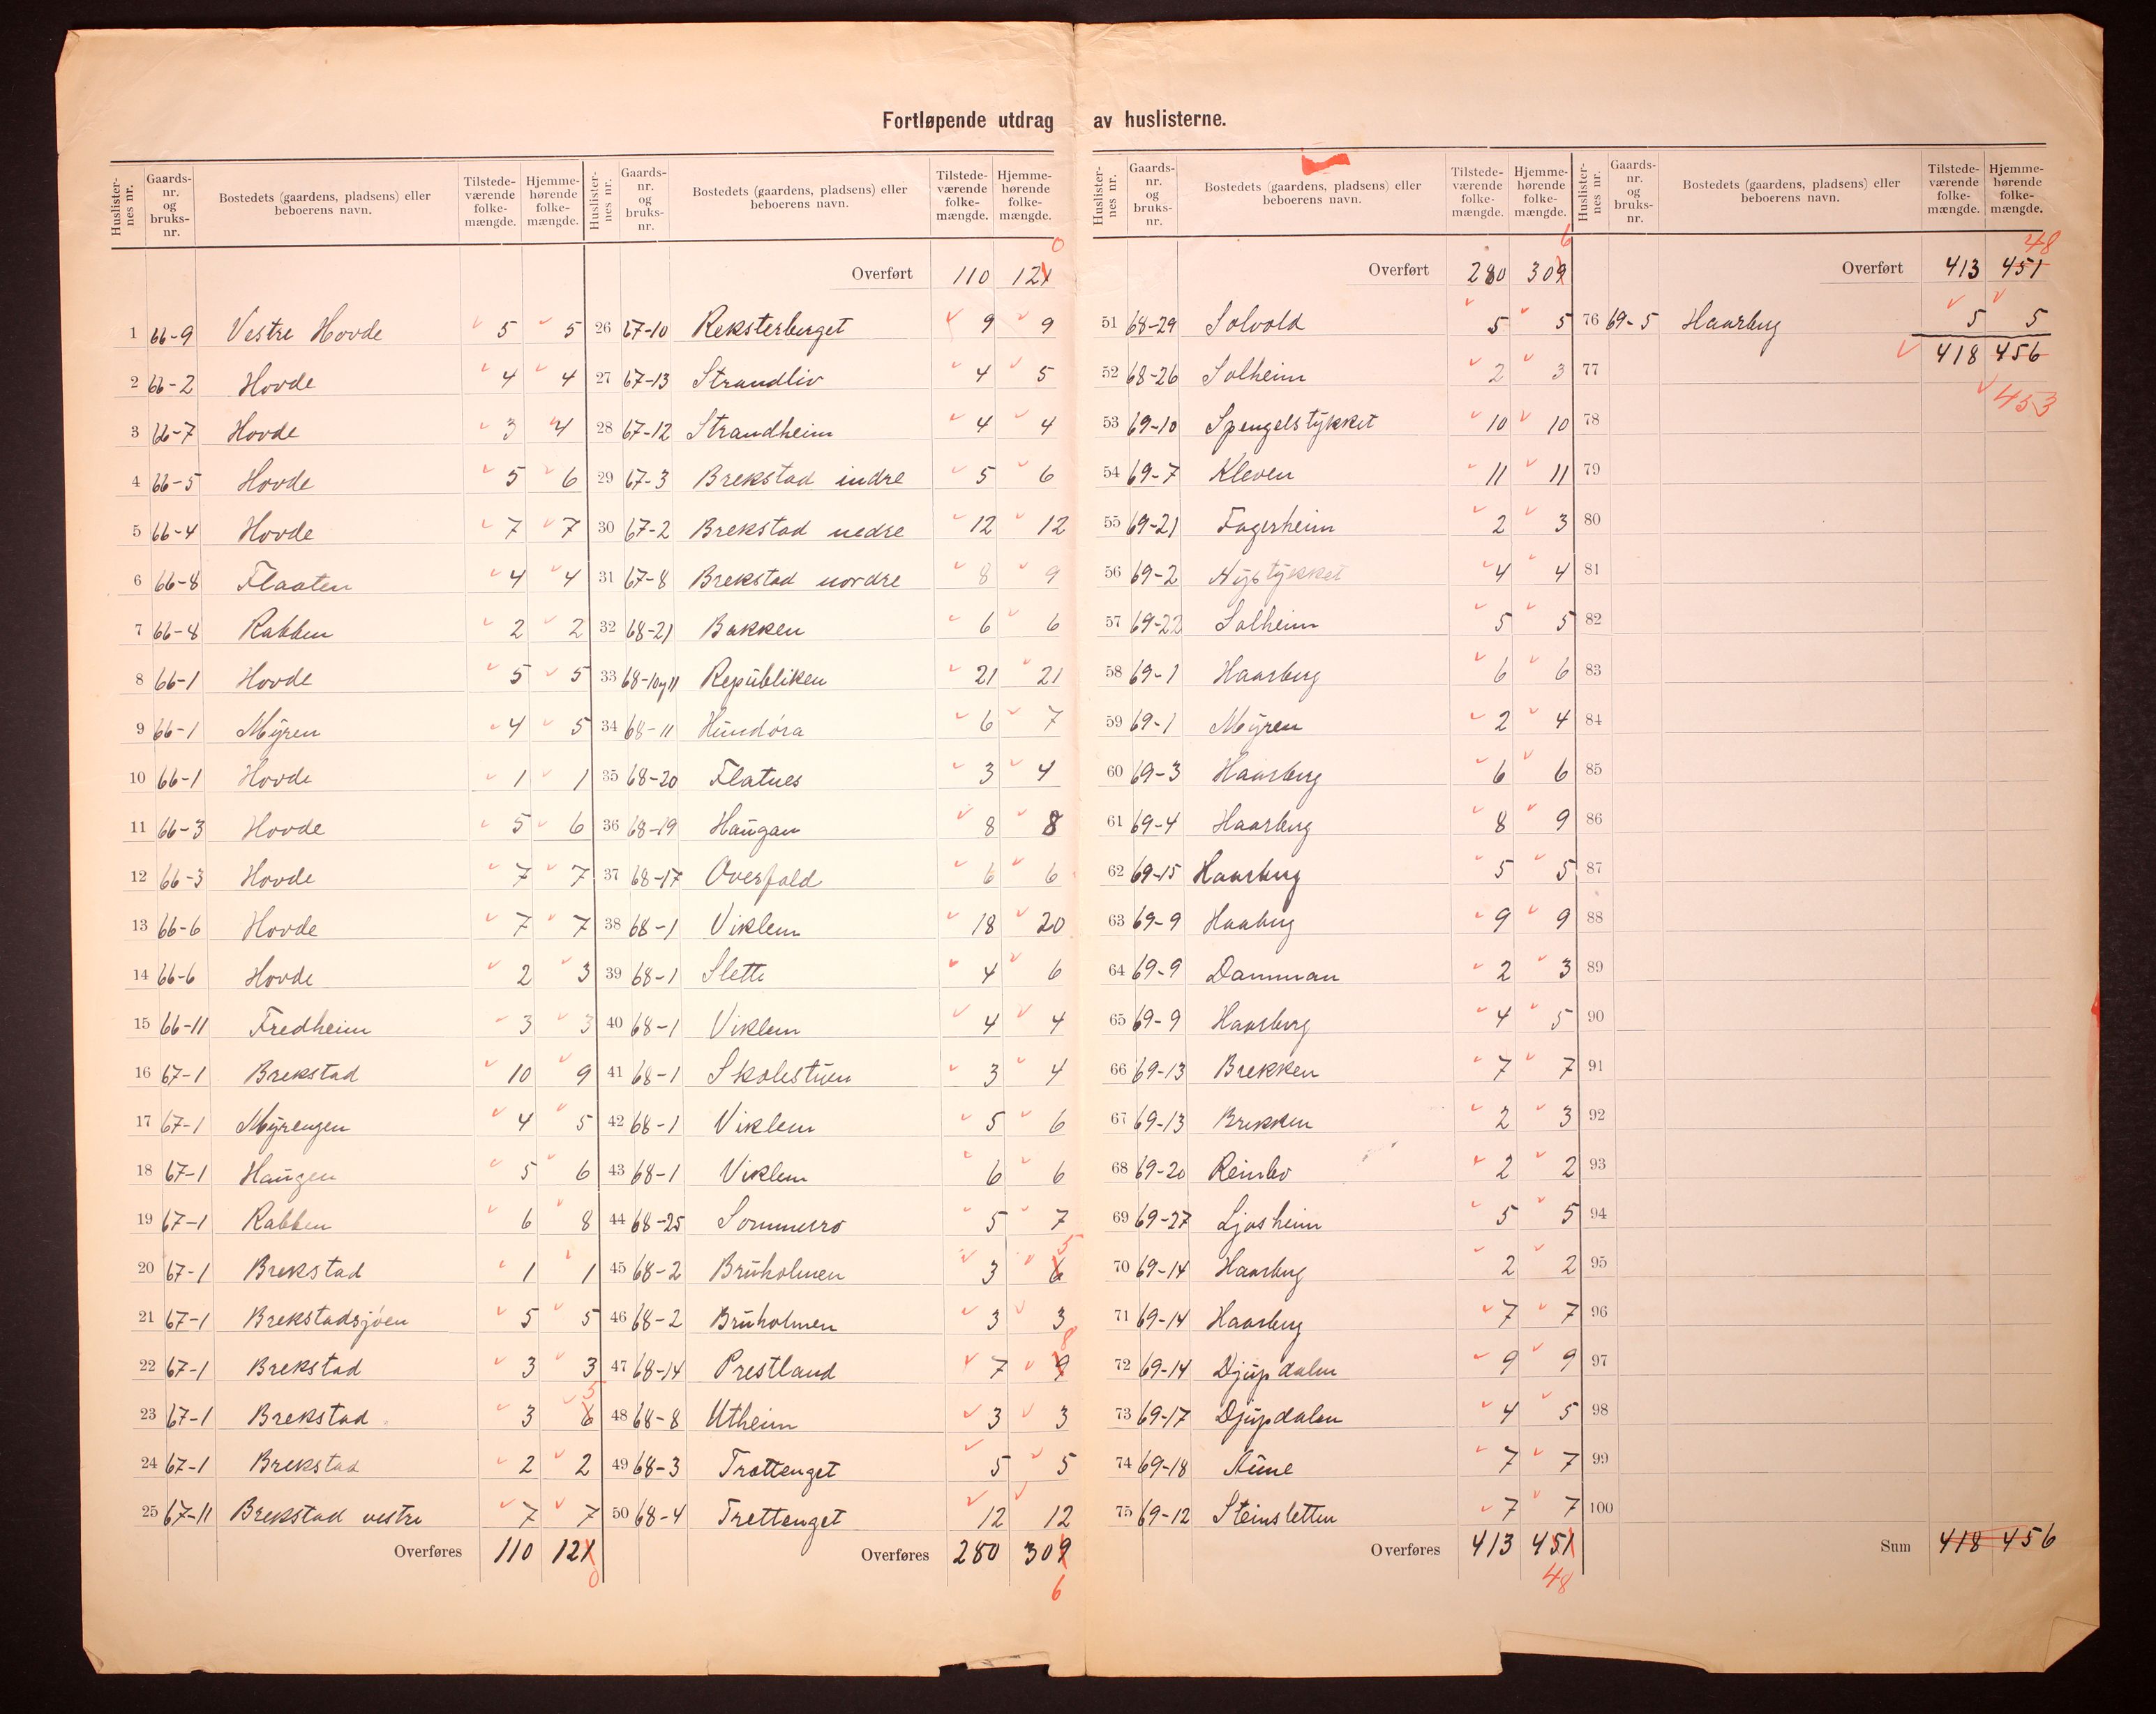 Fortløpende utdrag av huslisterne.
Huslister-nes nr. Gaards-nr. og bruks-nr. Bostedets (gaardens, pladsens) eller beboerens navn. Tilstede-værende folke-mængde. Hjemme-hørende folke-mængde.
1 66-9 Vestre Hovde 5 5
2 66-2 Hovde 4 4
3 66-7 Hovde 3 4
4 66-5 Hovde 5 6
5 66-4 Hovde 7 7
6 66-8 Flaaten 4 4
7 66-8 Rabben 2 2
8 66-1 Hovde 5 5
9 66-1 Myren 4 5
10 66-1 Hovde 1 1
11 66-3 Hovde 5 6
12 66-3 Hovde 7 7
13 66-6 Hovde 7 7
14 66-6 Hovde 2 3
15 66-11 Fredheim 3 3
16 67-1 Brekstad 10 9
17 67-1 Myrengen 4 5
18 67-1 Haugen 5 6
19 67-1 Rabben 6 8
20 67-1 Brekstad 1 1
21 67-1 Brekstadsjøen 5 5
22 67-1 Brekstad 3 3
23 67-1 Brekstad 3 6 5
24 67-1 Brekstad 2 2
25 67-11 Brekstad vestre 7 7
Overføres 110 121 0
Huslister-nes nr. Gaards-nr. og bruks-nr. Bostedets (gaardens, pladsens) eller beboerens navn. Tilstede-værende folke-mængde. Hjemme-hørende folke-mængde.
Overført 110 121 0
26 67-10 Reksterberget 9 9
27 67-13 Strandliv 4 5
28 67-12 Strandheim 4 4
29 67-3 Brekstad indre 5 6
30 67-2 Brekstad nedre 12 12
31 67-8 Brekstad nordre 8 9
32 68-21 Bakken 6 6
33 68-10 og 11 Republiken 21 21
34 68-11 Hundøra 6 7
35 68-20 Flatnes 3 4
36 68-19 Haugan 8 8
37 68-17 Overfald 6 6
38 68-1 Viklem 18 20
39 68-1 Slette 4 6
40 68-1 Viklem 4 4
41 68-1 Skolestuen 3 4
42 68-1 Viklem 5 6
43 68-1 Viklem 6 6
44 68-25 Sommerro 5 7
45 68-2 Bruholmen 3 6 5
46 68-2 Bruholmen 3 3
47 68-14 Prestland 7 9 8
48 68-8 Utheim 3 3
49 68-3 Trættenget 5 5
50 68-4 Trettenget 12 12
Overføres 280 309 6
Huslister-nes nr. Gaards-nr. og bruks-nr. Bostedets (gaardens, pladsens) eller beboerens navn. Tilstede-værende folke-mængde. Hjemme-hørende folke-mængde.
Overført 280 309 6
51 68-29 Solvold 5 5
52 68-26 Solheim 2 3
53 69-10 Spengelstykket 10 10
54 69-7 Kleven 11 11
55 69-21 Fagerheim 2 3
56 69-2 Nystykket 4 4
57 69-22 Solheim 5 5
58 69-1 Haarberg 6 6
59 69-1 Myren 2 4
60 69-3 Haarberg 6 6
61 69-4 Haarberg 8 9
62 69-15 Haarberg 5 5
63 69-9 Haaberg 9 9
64 69-9 Damman 2 3
65 69-9 Haarberg 4 5
66 69-13 Brekken 7 7
67 69-13 Brekken 2 3
68 69-20 Reinbo 2 2
69 69-27 Ljosheim 5 5
70 69-14 Haarberg 2 2
71 69-14 Haarberg 7 7
72 69-14 Djupdalen 9 9
73 69-17 Djupdalen 4 5
74 69-18 Aune 7 7
75 69-12 Steinsletten 7 7
Overføres 413 451 48
Huslister-nes nr. Gaards-nr. og bruks-nr. Bostedets (gaardens, pladsens) eller beboerens navn. Tilstede-værende folke-mængde. Hjemme-hørende folke-mængde.
Overført 413 451 48
76 69-5 Haarberg 5 5
77 418 456
453
78
79
80
81
82
83
84
85
86
87
88
89
90
91
92
93
94
95
96
97
98
99
100
Sum 418 456